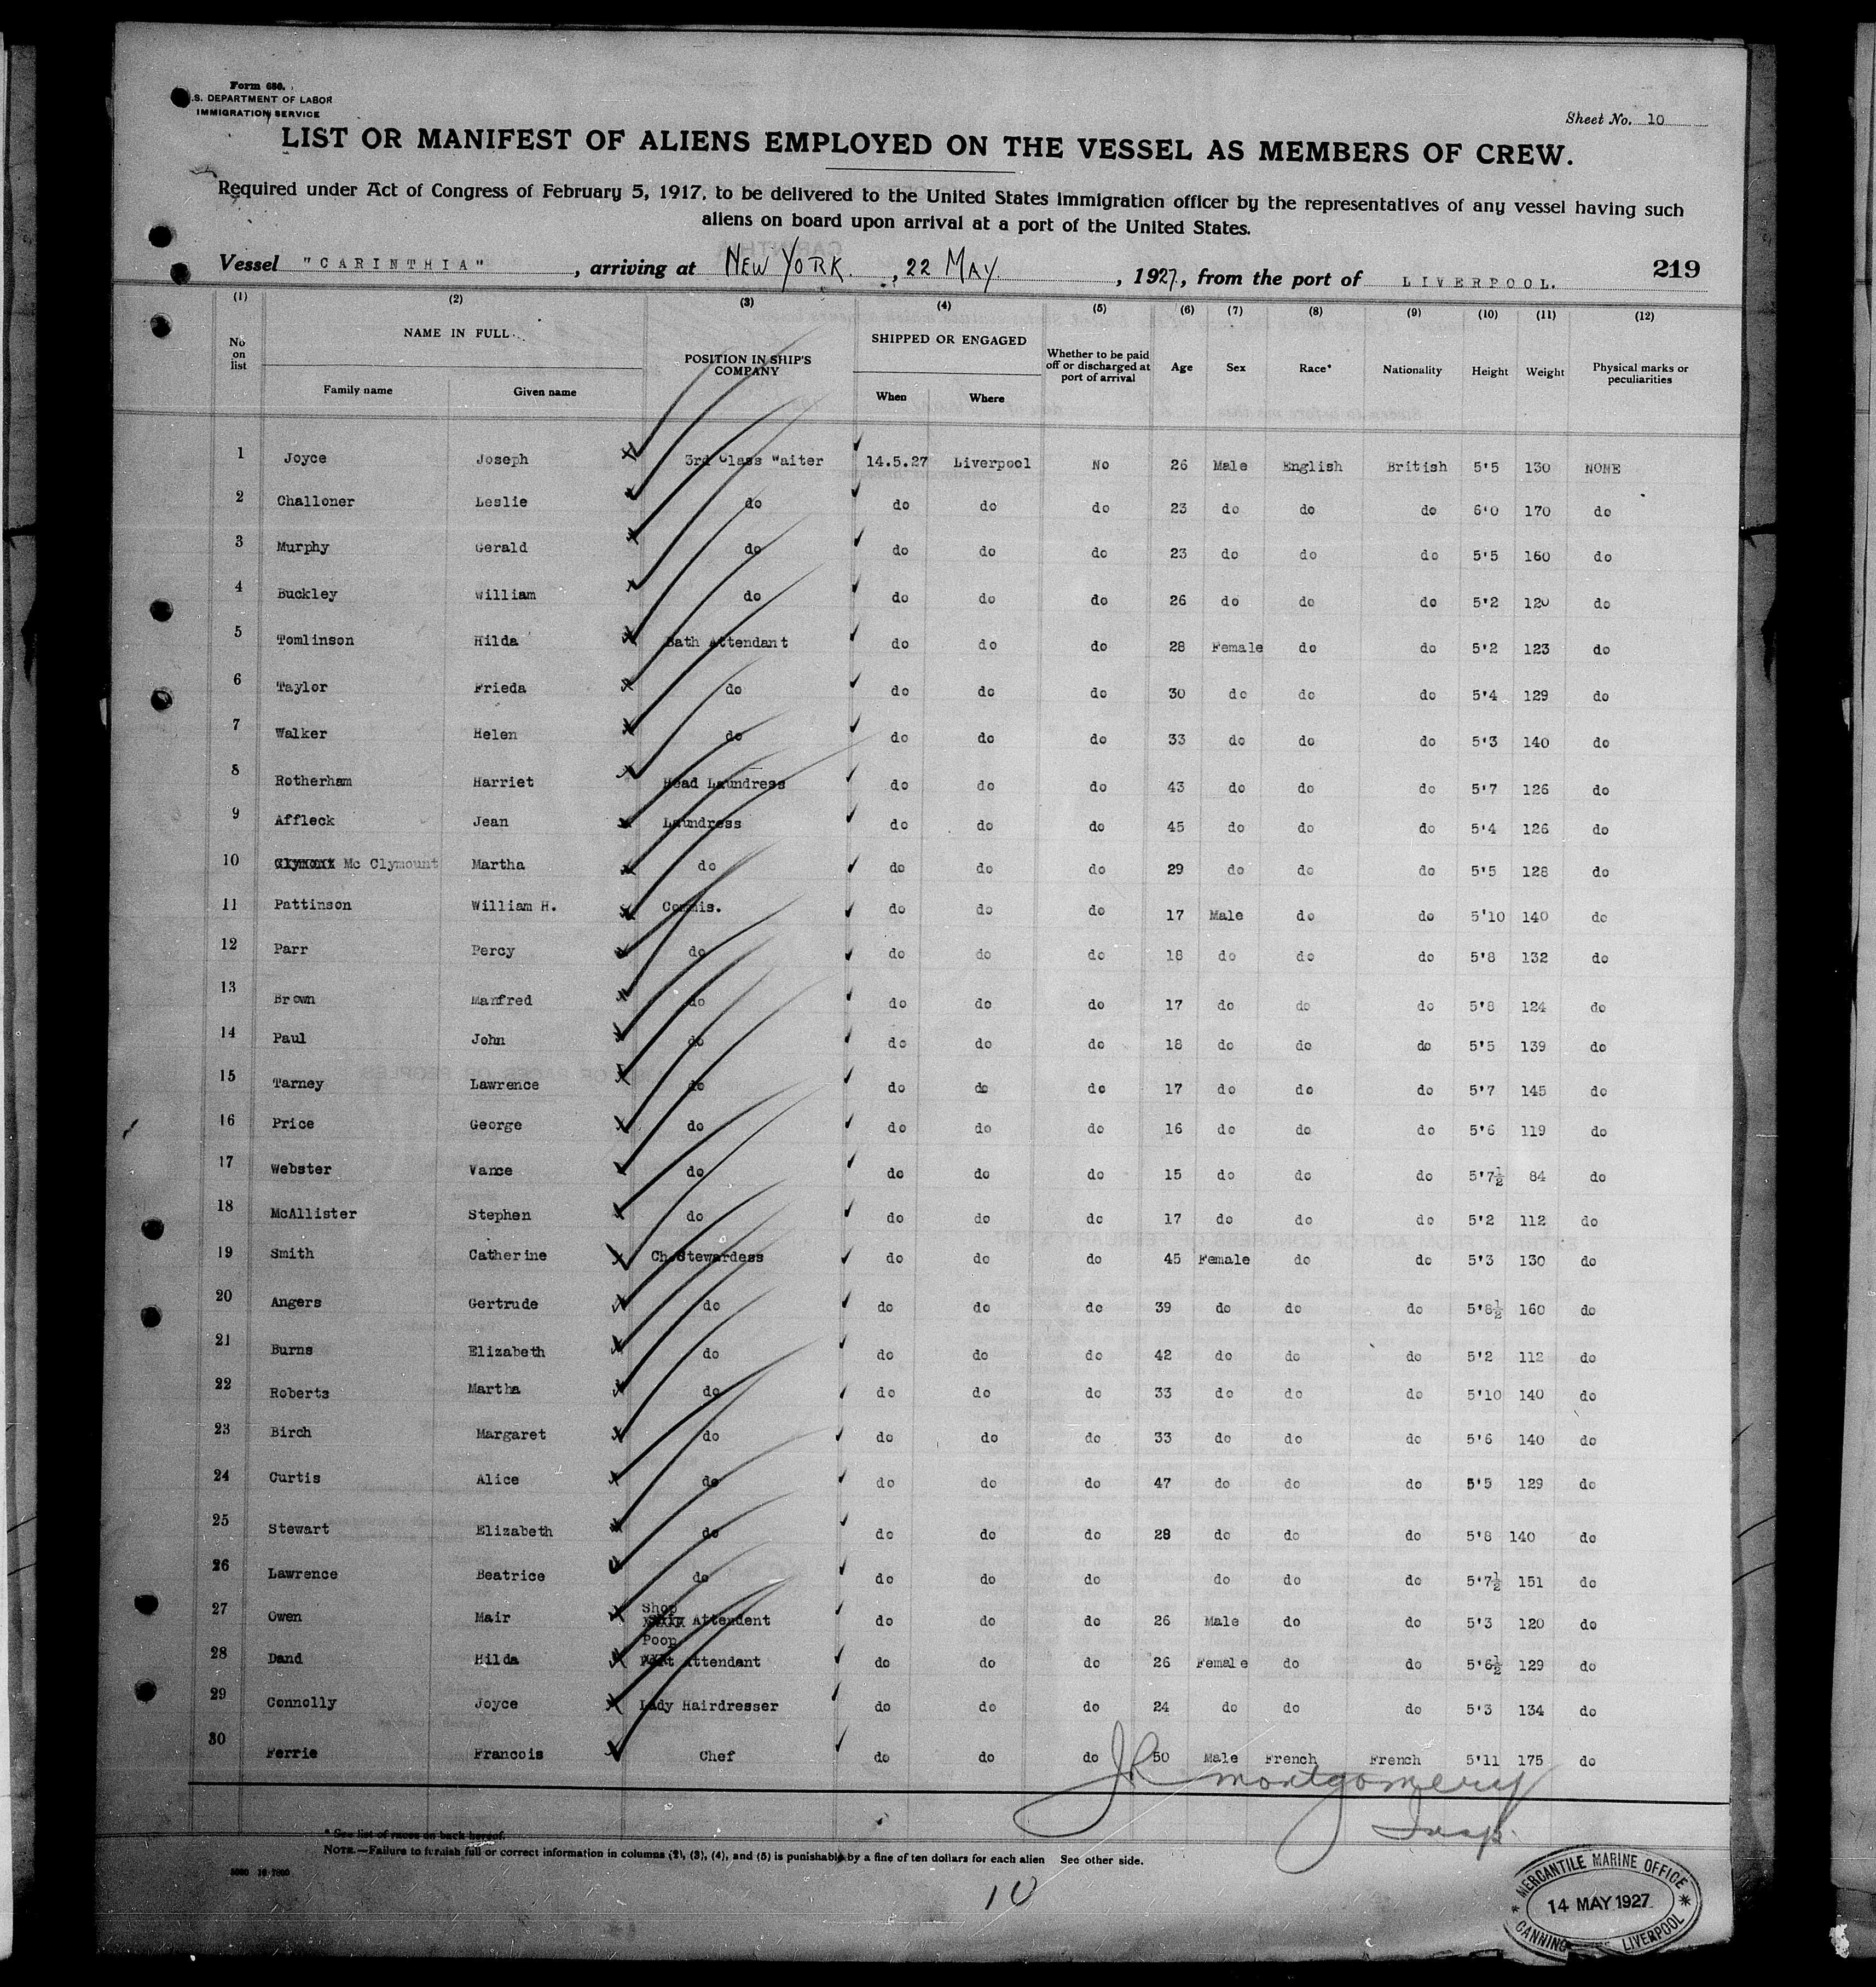 Form 680.
U.S. DEPARTMENT OF LABOR
IMMIGRATION SERVICE
Sheet No. 10
LIST OR MANIFEST OF ALIENS EMPLOYED ON THE VESSEL AS MEMBERS OF CREW.
Required under Act of Congress of February 5, 1917, to be delivered to the United States immigration officer by the representatives of any vessel having such
aliens on board upon arrival at a port of the United States.
Vessel "CARINTHIA", arriving at NEW YORK., 22 MAY, 1927, from the port of LIVERPOOL. 219
(1) (2) (3) (4) (5) (6) (7) (8) (9) (10) (11) (12)
No on list NAME IN FULL Family name Given name POSITION IN SHIP'S COMPANY SHIPPED OR ENGAGED When Where Whether to be paid off or discharged at port of arrival Age Sex Race* Nationality Height Weight Physical marks or peculiarities
1 Joyce Joseph 3rd Class Waiter 14.5.27 Liverpool No 26 Male English British 5'5 130 NONE
2 Challoner Leslie do do do do 23 do do do 6'0 170 do
3 Murphy Gerald do do do do 23 do do do 5'5 160 do
4 Buckley William do do do do 26 do do do 5'2 120 do
5 Tomlinson Hilda Bath Attendant do do do 28 Female do do 5'2 123 do
6 Taylor Frieda do do do do 30 do do do 5'4 129 do
7 Walker Helen do do do do 33 do do do 5'3 140 do
8 Rotherham Harriet Head Laundress do do do 43 do do do 5'7 126 do
9 Affleck Jean Laundress do do do 45 do do do 5'4 126 do
10 Clymont Mc Clymount Martha do do do do 29 do do do 5'5 128 do
11 Pattinson William H. Commis. do do do 17 Male do do 5'10 140 do
12 Parr Percy do do do do 18 do do do 5'8 132 do
13 Brown Manfred do do do do 17 do do do 5'8 124 do
14 Paul John do do do do 18 do do do 5'5 139 do
15 Tarney Lawrence do do do do 17 do do do 5'7 145 do
16 Price George do do do do 16 do do do 5'6 119 do
17 Webster Vance do do do do 15 do do do 5'7½ 84 do
18 McAllister Stephen do do do do 17 do do do 5'2 112 do
19 Smith Catherine Ch.Stewardess do do do 45 Female do do 5'3 130 do
20 Angers Gertrude do do do do 39 do do do 5'8½ 160 do
21 Burns Elizabeth do do do do 42 do do do 5'2 112 do
22 Roberts Martha do do do do 33 do do do 5'10 140 do
23 Birch Margaret do do do do 33 do do do 5'6 140 do
24 Curtis Alice do do do do 47 do do do 5'5 129 do
25 Stewart Elizabeth do do do do 28 do do do 5'8 140 do
26 Lawrence Beatrice do do do do do do do 5'7½ 151 do
27 Owen Mair Shop Attendent do do do 26 Male do do 5'3 120 do
28 Dand Hilda Poop Attendant do do do 26 Female do do 5'6½ 129 do
29 Connolly Joyce Lady Hairdresser do do do 24 do do do 5'3 134 do
30 Ferrie Francois Chef do do do 50 Male French French 5'11 175 do
JR Montgomery
Insp.
* See list of races on back hereof.
NOTE.—Failure to furnish full or correct information in columns (2), (3), (4), and (5) is punishable by a fine of ten dollars for each alien See other side.
10
MERCANTILE MARINE OFFICE
14 MAY 1927
CANNING LIVERPOOL